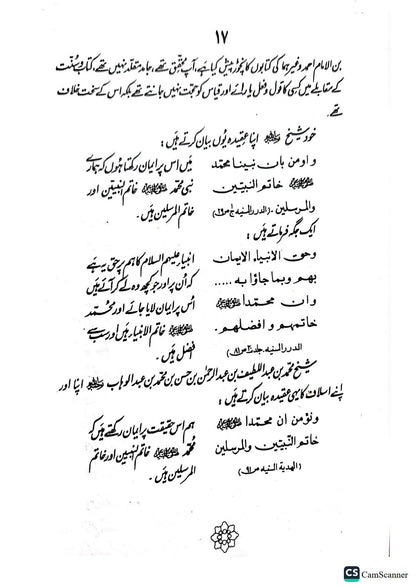 ۱۷
بن الامام احمد وغیرہما کی کتابوں کا نچوڑ پیش کیا ہے، آپ محقق تھے، جامد مقلد نہیں تھے، کتاب و سنّت
کے مقابلے میں کسی کا قول و فعل یا رائے اور قیاس کو حجت نہیں جانتے تھے بلکہ اس کے سخت خلاف
تھے۔
خود شیخ اپنا عقیدہ یوں بیان کرتے ہیں:
و اومن بان نبینا محمد
ﷺ خاتم النبیین
والمرسلین۔ (الدرر السنیہ
میں اس پر ایمان رکھتا ہوں کہ ہمارے
نبی محمد ﷺ خاتم النبیین اور
خاتم المرسلین ہیں۔
ایک جگہ فرماتے ہیں:
وحق الانبیاء الایمان
بهم وبما جاؤا به .....
وان محمدا ﷺ
خاتمهم و افضلهم۔
الدرر السنیہ جلد
انبیاء علیہم السلام کا ہم پر حق یہ ہے
کہ ان پر اور جو کچھ وہ لے کر آئے ہیں
اُس پر ایمان لایا جائے اور محمد
ﷺ خاتم الانبیاء ہیں اور سب سے
افضل ہیں۔
شیخ محمد بن عبد اللطیف بن عبد الرحمٰن بن حسن بن محمد بن عبد الوہاب اپنا اور
اپنے اسلاف کا یہی عقیدہ بیان کرتے ہیں:
ونؤمن ان محمدا ﷺ
خاتم النبیین والمرسلین
(الهدیة السنیه
ہم اس حقیقت پر ایمان رکھتے ہیں کہ
محمد ﷺ خاتم النبیین اور خاتم
المرسلین ہیں۔
CS CamScanner